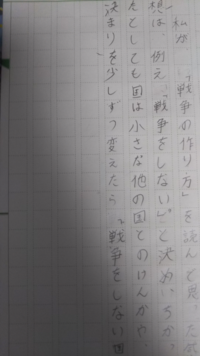 私が「戦争の作り方」を読んで思った感
想は、例え「戦争をしない」と決めいちが
たとしても国は小さな他の国とのけんかや、
決まりを少しずつ変えたら「戦争をしない国